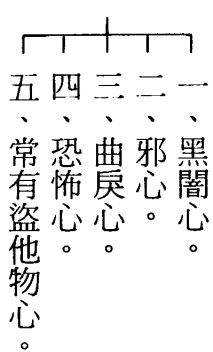 一、黑闇心。
二、邪心。
三、曲戾心。
四、恐怖心。
五、常有盜他物心。